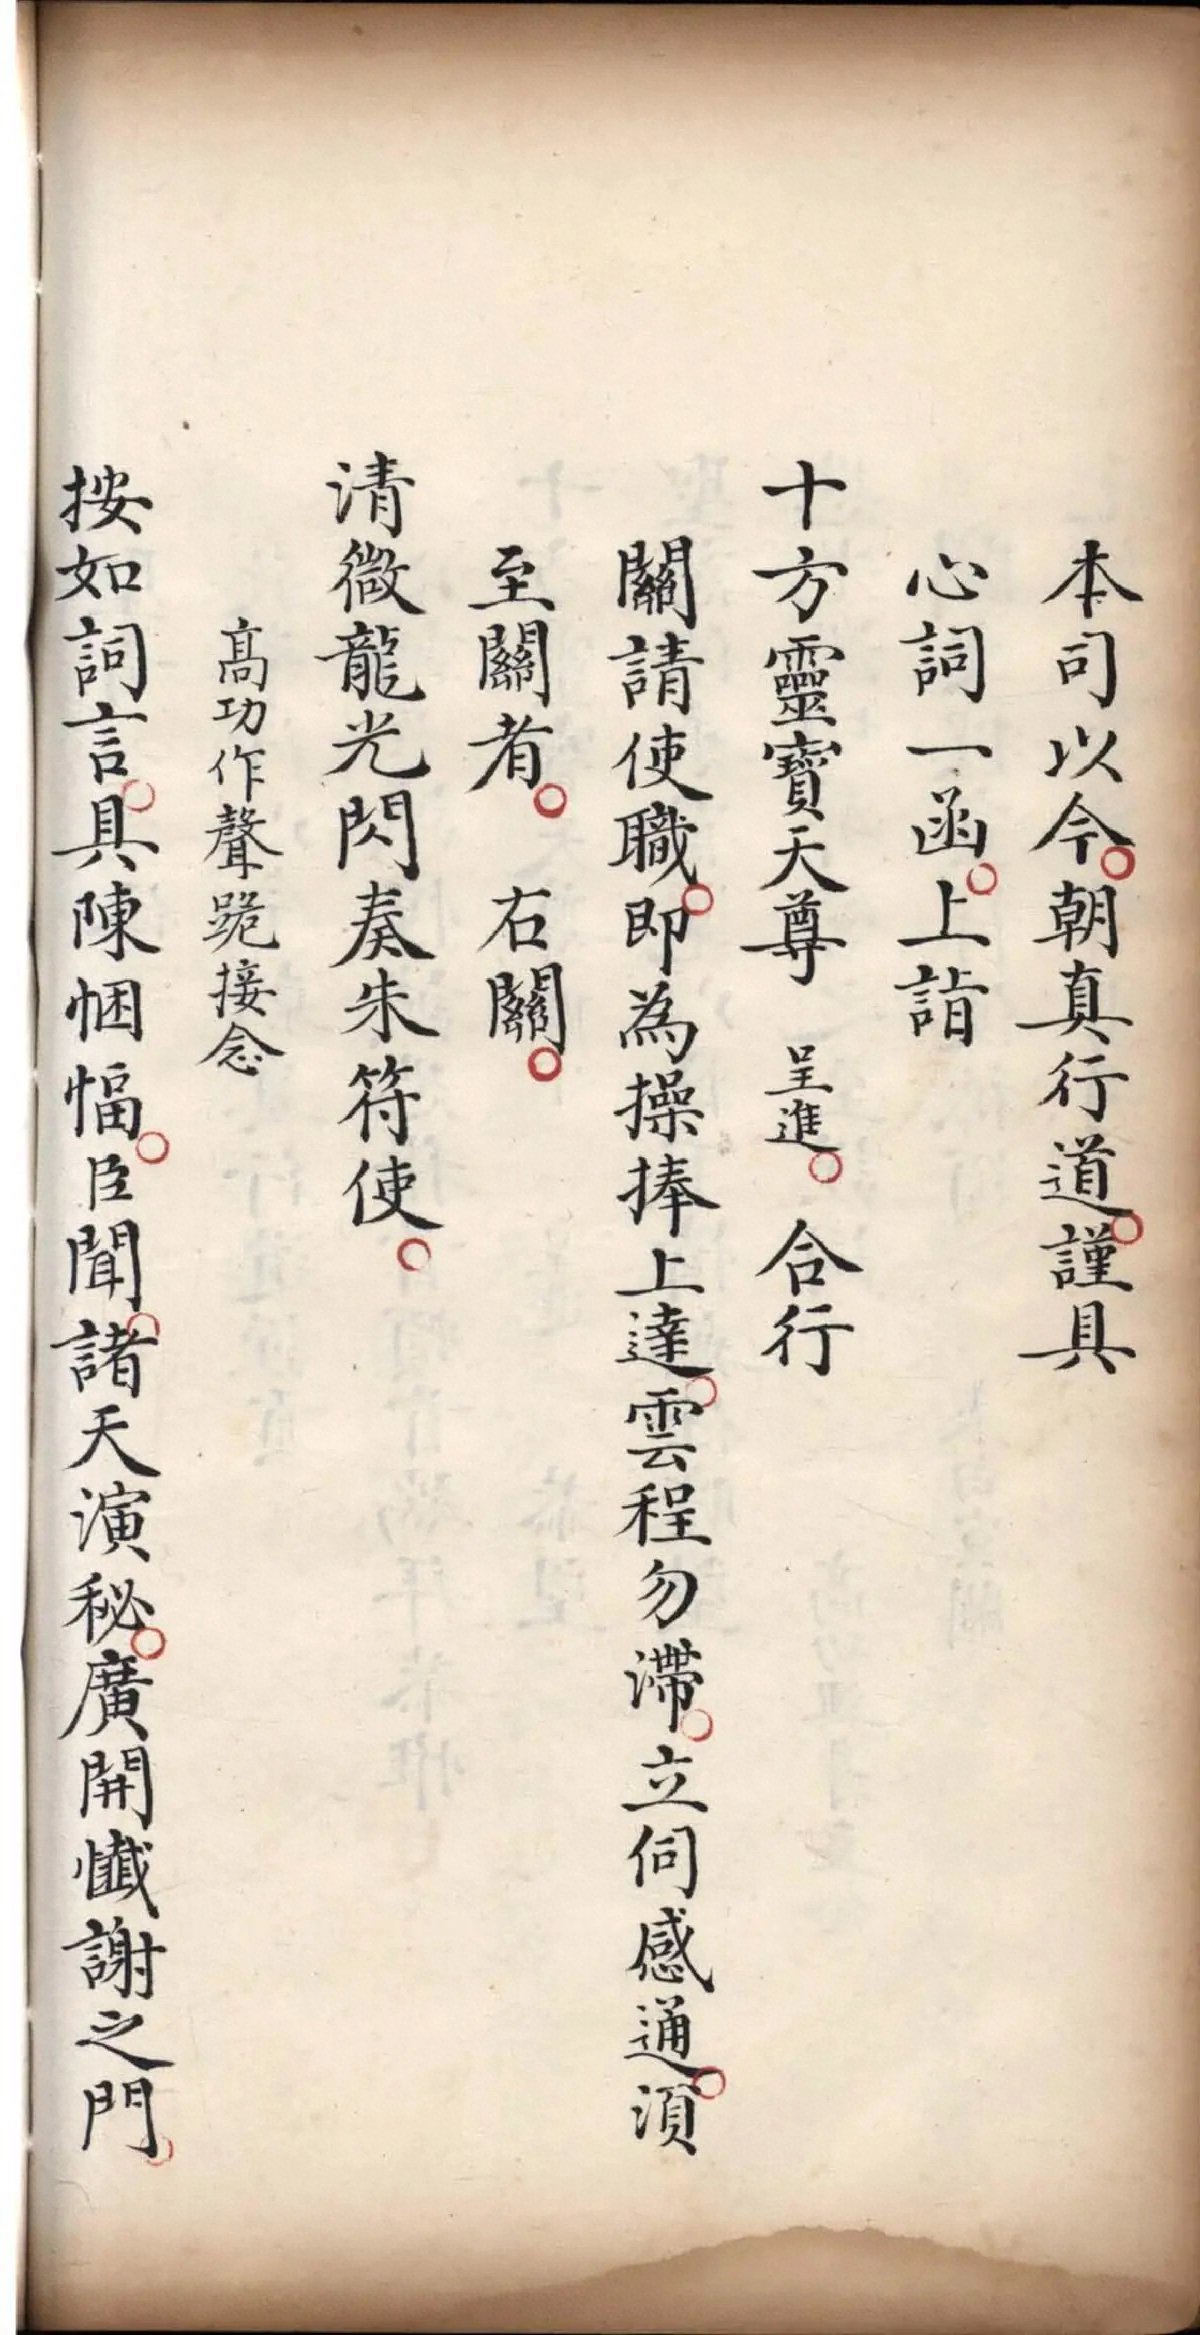 本司以今朝真行道謹具
心詞一函上詣
十方靈寶天尊 呈進 合行
關請使職即為操捧上達雲程勿滯立伺感通湏
至關者 右關
清微龍光閃奏朱符使
髙功作聲跪接念
按如詞言具陳悃愊臣聞諸天演秘廣開懺謝之門